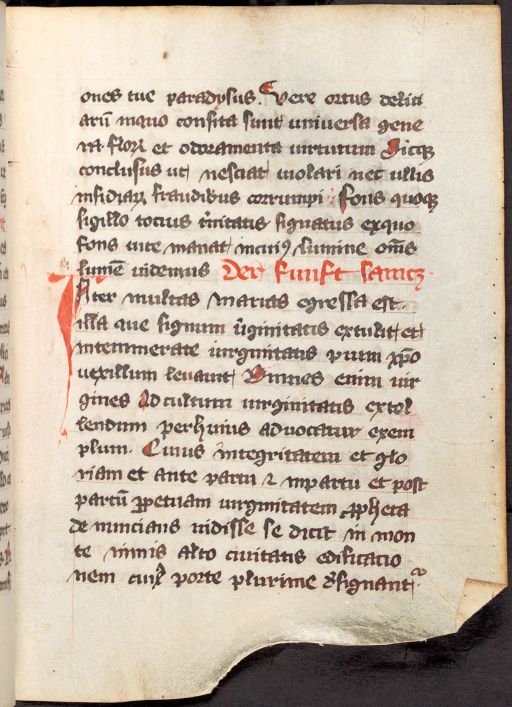 ones tue paradysus. Vere ortus delici
arũ in quo consita sunt universa gene
ra florꝝ et odoramenta virtutum Sicqꝫ
conclusus ut nesciat violari nec ullis
insidiarꝝ fraudibus corrumpi Fons quoqꝫ
sigillo tocius trinitatis signatus ex quo
fons vite manat in cuiꝰ lumine om̄s
lumē videmus Der funft samcz
Inter multas marias egressa est
illa que signum ũginitatis extulit et
intemmerate virginitatis vium xp̃o
vexillum levavit Omnes enim vir
gines Ad cultum virginitatis extol
lendum perhuius advocatur exem
plum. Cuius integritatem et glo
riam et ante partũ ⁊ in partu et post
partũ ꝑpetuam virginitatem ꝓpheta
denuncians vidisse se dicit in mon
te nimis alto civitatis edificatio
nem cuiꝰ porte plurime ꝯsignant